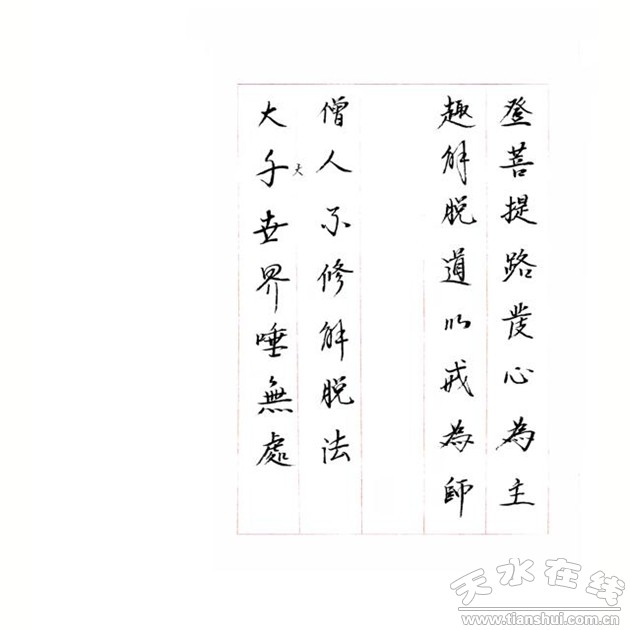 登菩提路發心為主
趣解脱道以戒為師
僧人不修解脱法
大千世界唾無處
大
天水在线
www.tianshui.com.cn